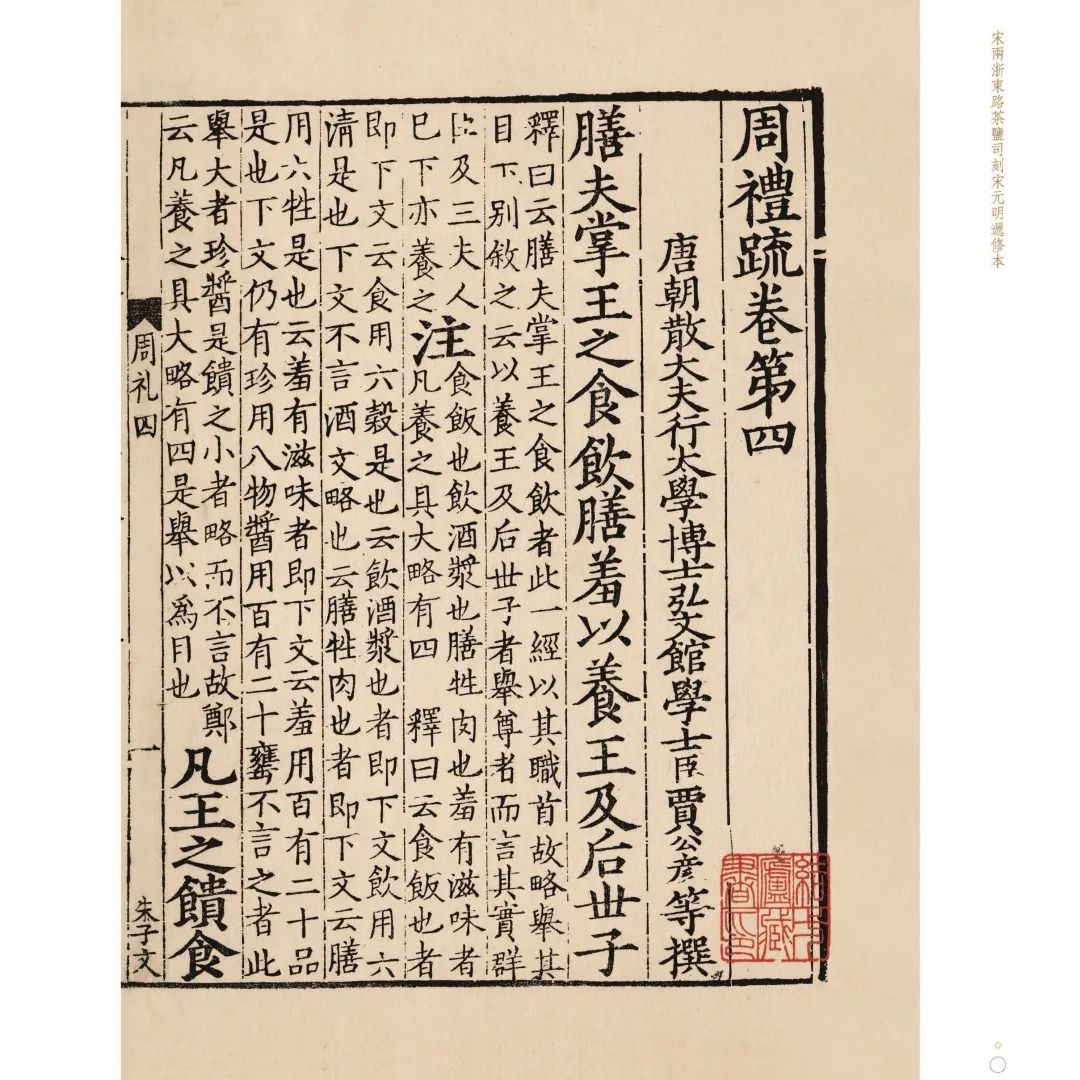 宋兩浙東路茶鹽司刻宋元明遞修本
周禮䟽卷第四
唐朝散大夫行太學博士弘文館學士臣賈公彥等撰
膳夫掌王之食飲膳羞以養王及后丗子
釋曰云膳夫掌王之食飲者此一經以其職首故略舉其
目下別敘之云以養王及后丗子者舉尊者而言其實群
及三夫人
已下亦養之
注
食飯也飲酒漿也膳牲肉也羞有滋味者
凡養之具大略有四 釋曰云食飯也者
即下文云食用六穀是也云飲酒漿也者即下文飲用六
清是也下文不言酒文略也云膳牲肉也者即下文云膳
用六牲是也云羞有滋味者即下文云羞用百有二十品
是也下文仍有珍用八物醬用百有二十罋不言之者此
舉大者珍醬是饋之小者略而不言故鄭
云凡養之具大略有四是舉以爲目也
凡王之饋食
周礼四
一
朱子文